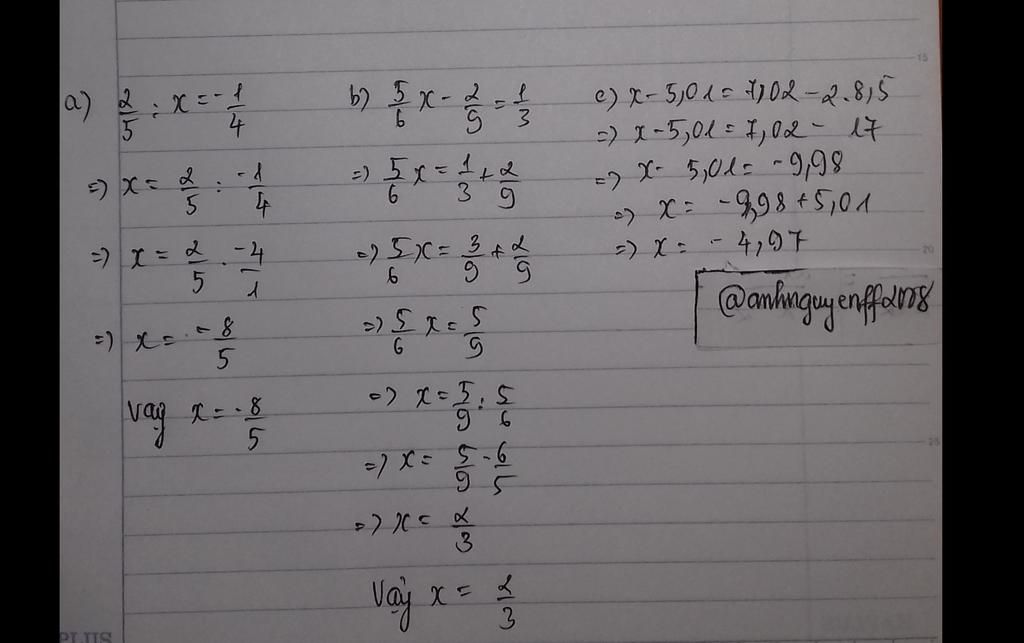 a) 2/5 : x = -1/4
=) x = 2/5 : -1/4
=) x = 2/5 . -4/1
=) x = -8/5
Vậy x = -8/5
b) 5/6 x - 2/9 = 1/3
=) 5/6 x = 1/3 + 2/9
=) 5/6 x = 3/9 + 2/9
=) 5/6 x = 5/9
=) x = 5/9 : 5/6
=) x = 5/9 . 6/5
=) x = 2/3
Vậy x = 2/3
c) x - 5,01 = 7,02 - 2.8,5
=) x - 5,01 = 7,02 - 17
=) x - 5,01 = -9,98
=) x = -9,98 + 5,01
=) x = -4,97
@anhnguyenff2008
15
20
25
PLUS